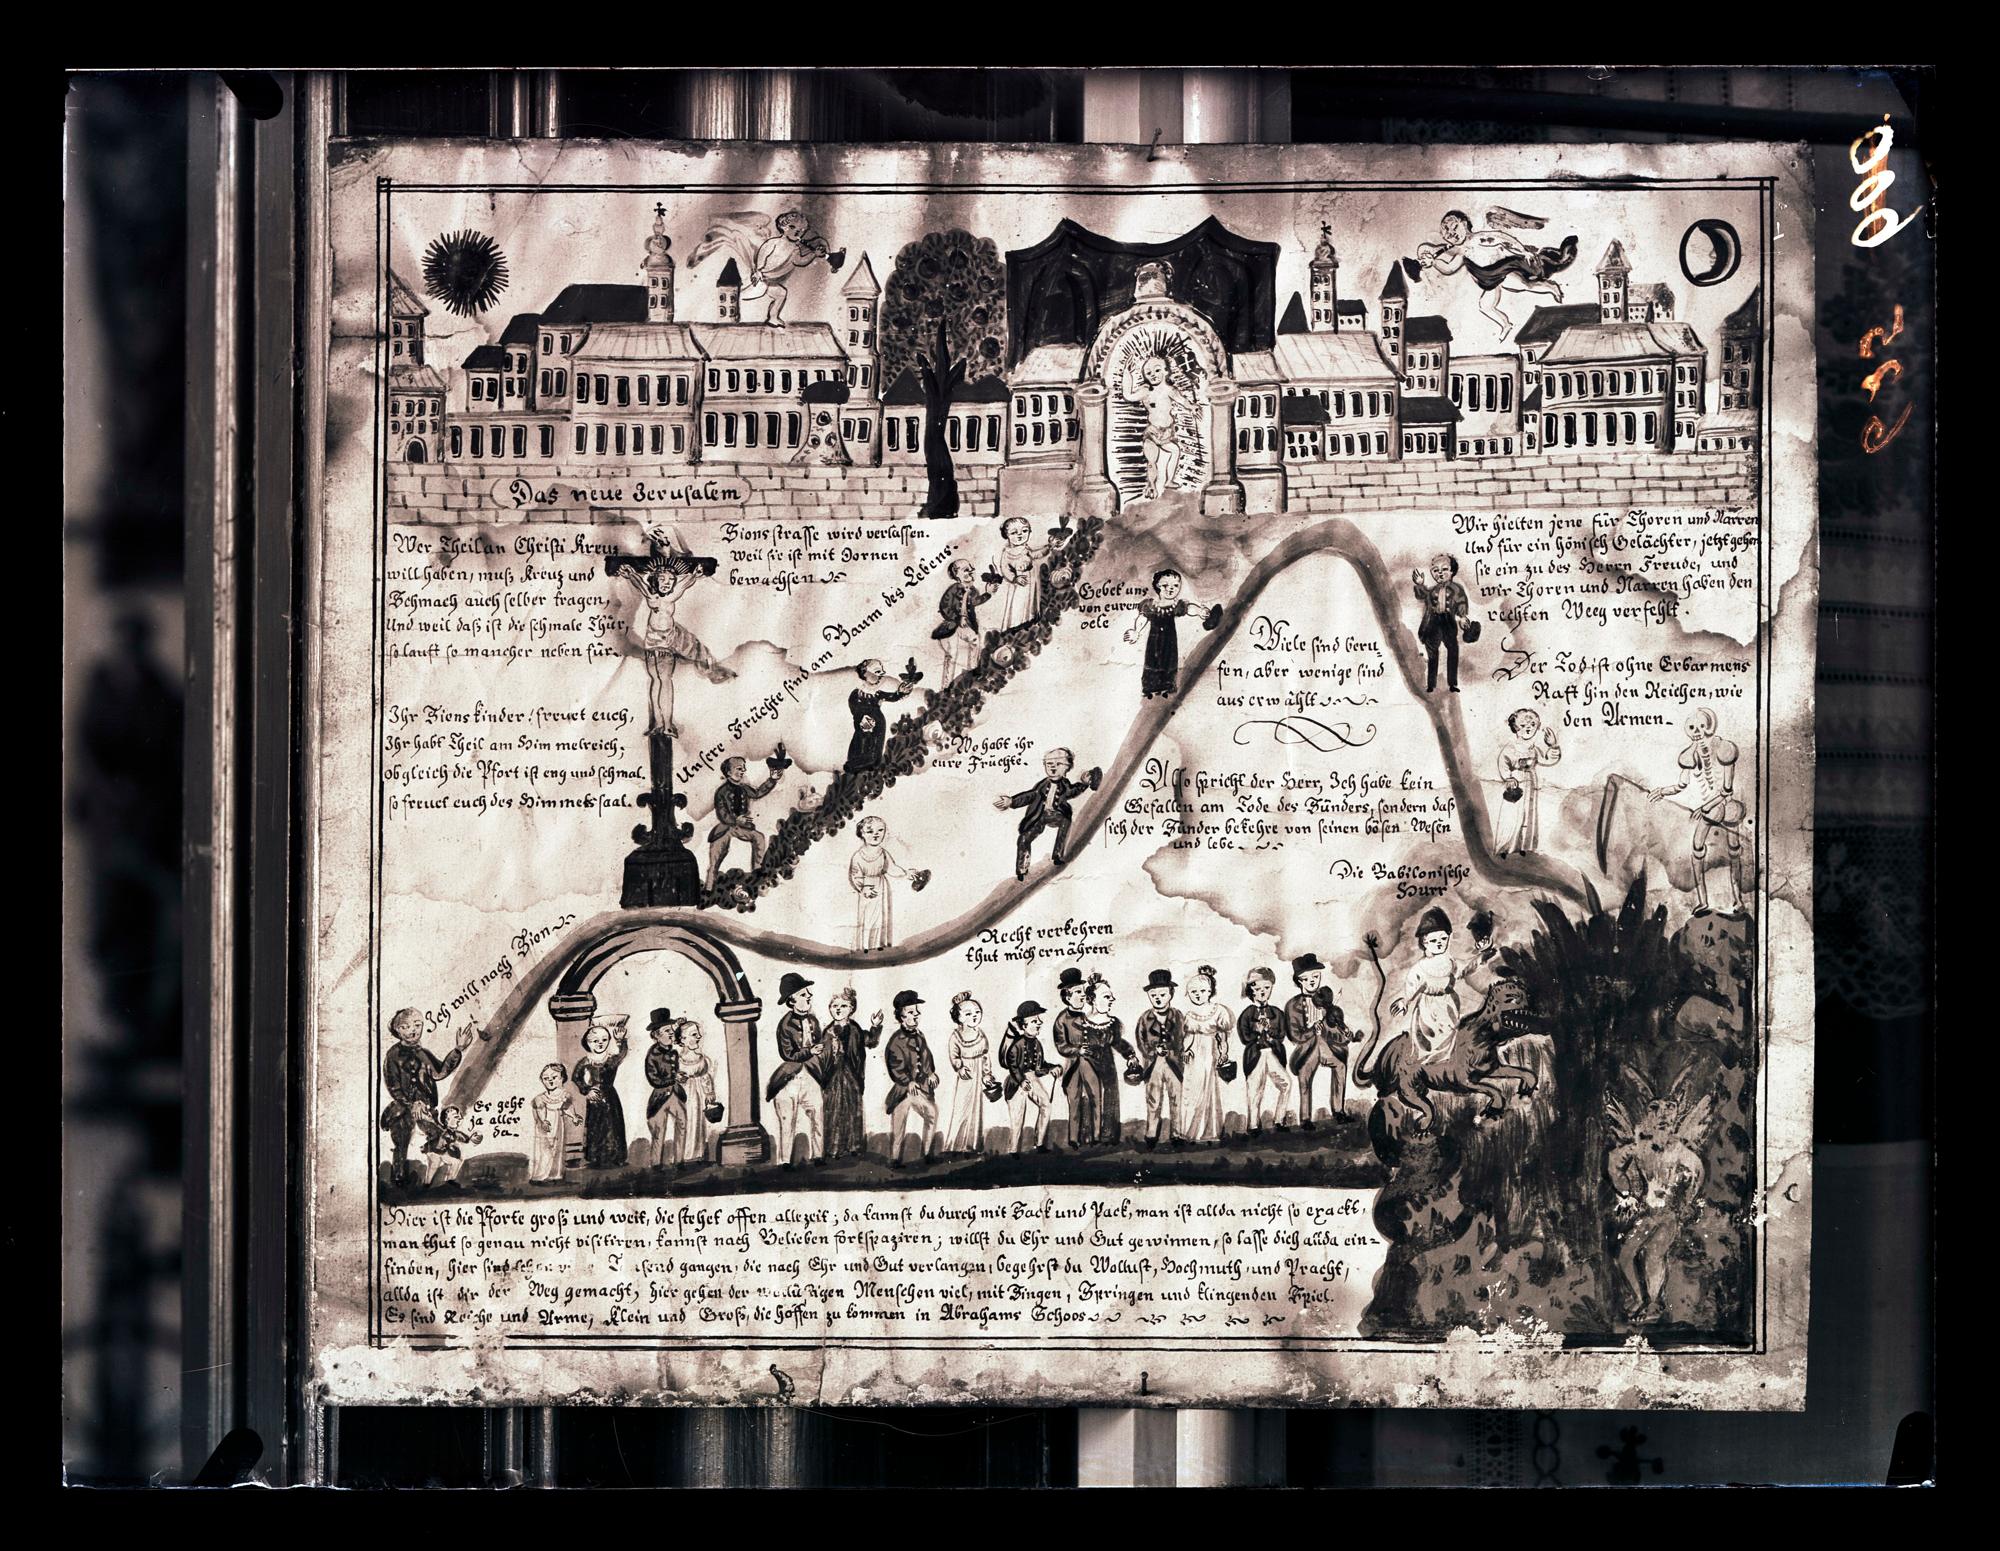 Das neue Jerusalem
Wer Theil an Christi Kreuz
will haben, muß Kreuz und
Schmach auch selber tragen,
Und weil daß ist die schmale Thür,
so lauft so mancher neben für.
Ihr Sions kinder! freuet euch,
Ihr habt Theil am Himmelreich,
obgleich die Pfort ist eng und schmal.
so freuet euch des Himmels saal.
Sions strasse wird verlassen.
Weil sie ist mit Dornen
bewachsen
Unsere Früchte sind am Baum des Lebens.
Gebet uns
von eurem
oele
Wo habt ihr
eure Früchte.
Viele sind beru-
fen, aber wenige sind
auserwählt
Also spricht der Herr, Ich habe kein
Gefallen am Tode des Sünders, sondern daß
sich der Sünder bekehre von seinen bösen Wesen
und lebe.
Wir hielten jene für Thoren und Narren
Und für ein hönisch Gelächter, jetzt gehen
sie ein zu des Herrn Freude, und
wir Thoren und Narren haben den
rechten Weeg verfehlt.
Der Tod ist ohne Erbarmens
Raft hin den Reichen, wie
den Armen.
Die Babilonische
Hurr
Recht verkehren
thut mich ernähren
Ich will nach Sion
Es geht
ja aller
da.
Hier ist die Pforte groß und weit, die stehet offen allezeit; da kannst du durch mit Sack und Pack, man ist allda nicht so exackt,
man thut so genau nicht visitiren, kannst nach Belieben fortspaziren; willst du Ehr und Gut gewinnen, so lasse dich allda ein=
finden, hier sind gangen, die nach Ehr und Gut verlangen, begehrst du Wollust, Hochmuth und Pracht,
allda ist dir der Weg gemacht, hier gehen der Menschen viel, mit Singen, Springen und klingenden Spiel.
Es sind Reiche und Arme, Klein und Groß, die hoffen zu kommen in Abrahams Schoos
C 32